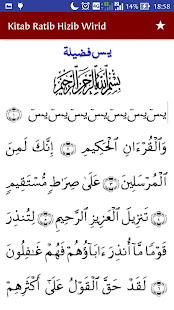 18:58
Kitab Ratib Hizib Wirid
يـس فضيلة
بِسْمِ ٱللَّهِ ٱلرَّحْمَٰنِ ٱلرَّحِيمِ
يسٓ يسٓ يسٓ يسٓ يسٓ يسٓ يسٓ ۝١
وَٱلْقُرْءَانِ ٱلْحَكِيمِ ۝٢ إِنَّكَ لَمِنَ
ٱلْمُرْسَلِينَ ۝٣ عَلَىٰ صِرَٰطٍ مُّسْتَقِيمٍ
۝٤ تَنزِيلَ ٱلْعَزِيزِ ٱلرَّحِيمِ ۝٥ لِتُنذِرَ
قَوْمًا مَّآ أُنذِرَ ءَابَآؤُهُمْ فَهُمْ غَٰفِلُونَ
۝٦ لَقَدْ حَقَّ ٱلْقَوْلُ عَلَىٰٓ أَكْثَرِهِمْ